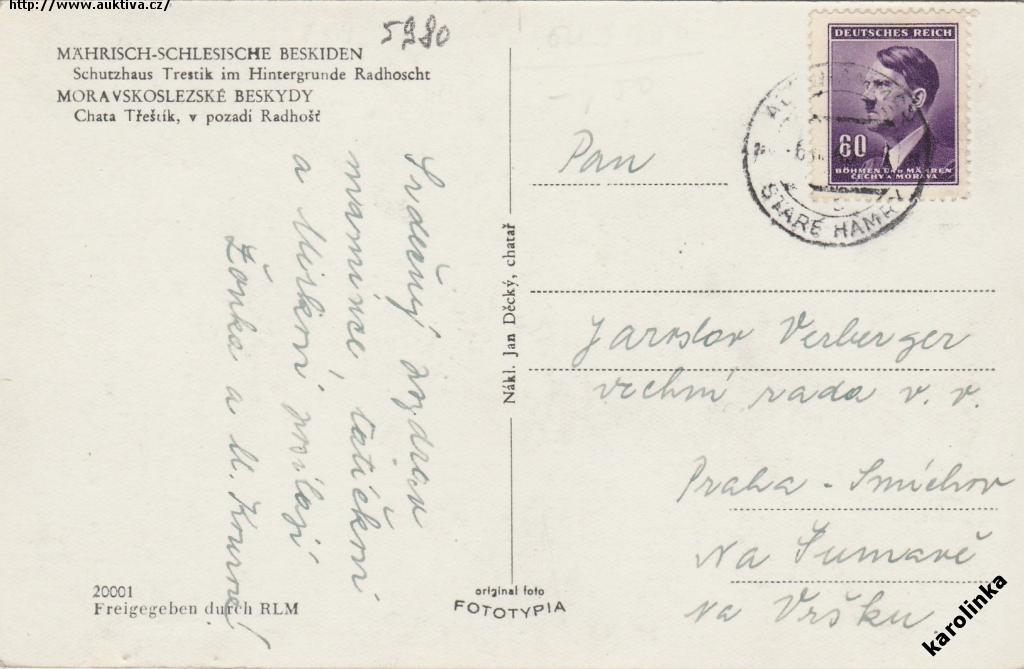 http://www.auktiva.cz/
5980
MÄHRISCH-SCHLESISCHE BESKIDEN
Schutzhaus Trestik im Hintergrunde Radhoscht
MORAVSKOSLEZSKÉ BESKYDY
Chata Třeštík, v pozadí Radhošť
Srdečný pozdrav
mamince, tatíčkovi
a Mirkovi posílají
Ženka a M.
20001
Freigegeben durch RLM
Nákl. Jan Děcký, chatař
original foto
FOTOTYPIA
DEUTSCHES REICH
60
BÖHMEN UND MÄHREN
ČECHY A MORAVA
STARÉ HAMRY
Pan
Jaroslav Verberger
vrchní rada v. v.
Praha - Smíchov
Na Šumavě
Na Vršku.
karolinka